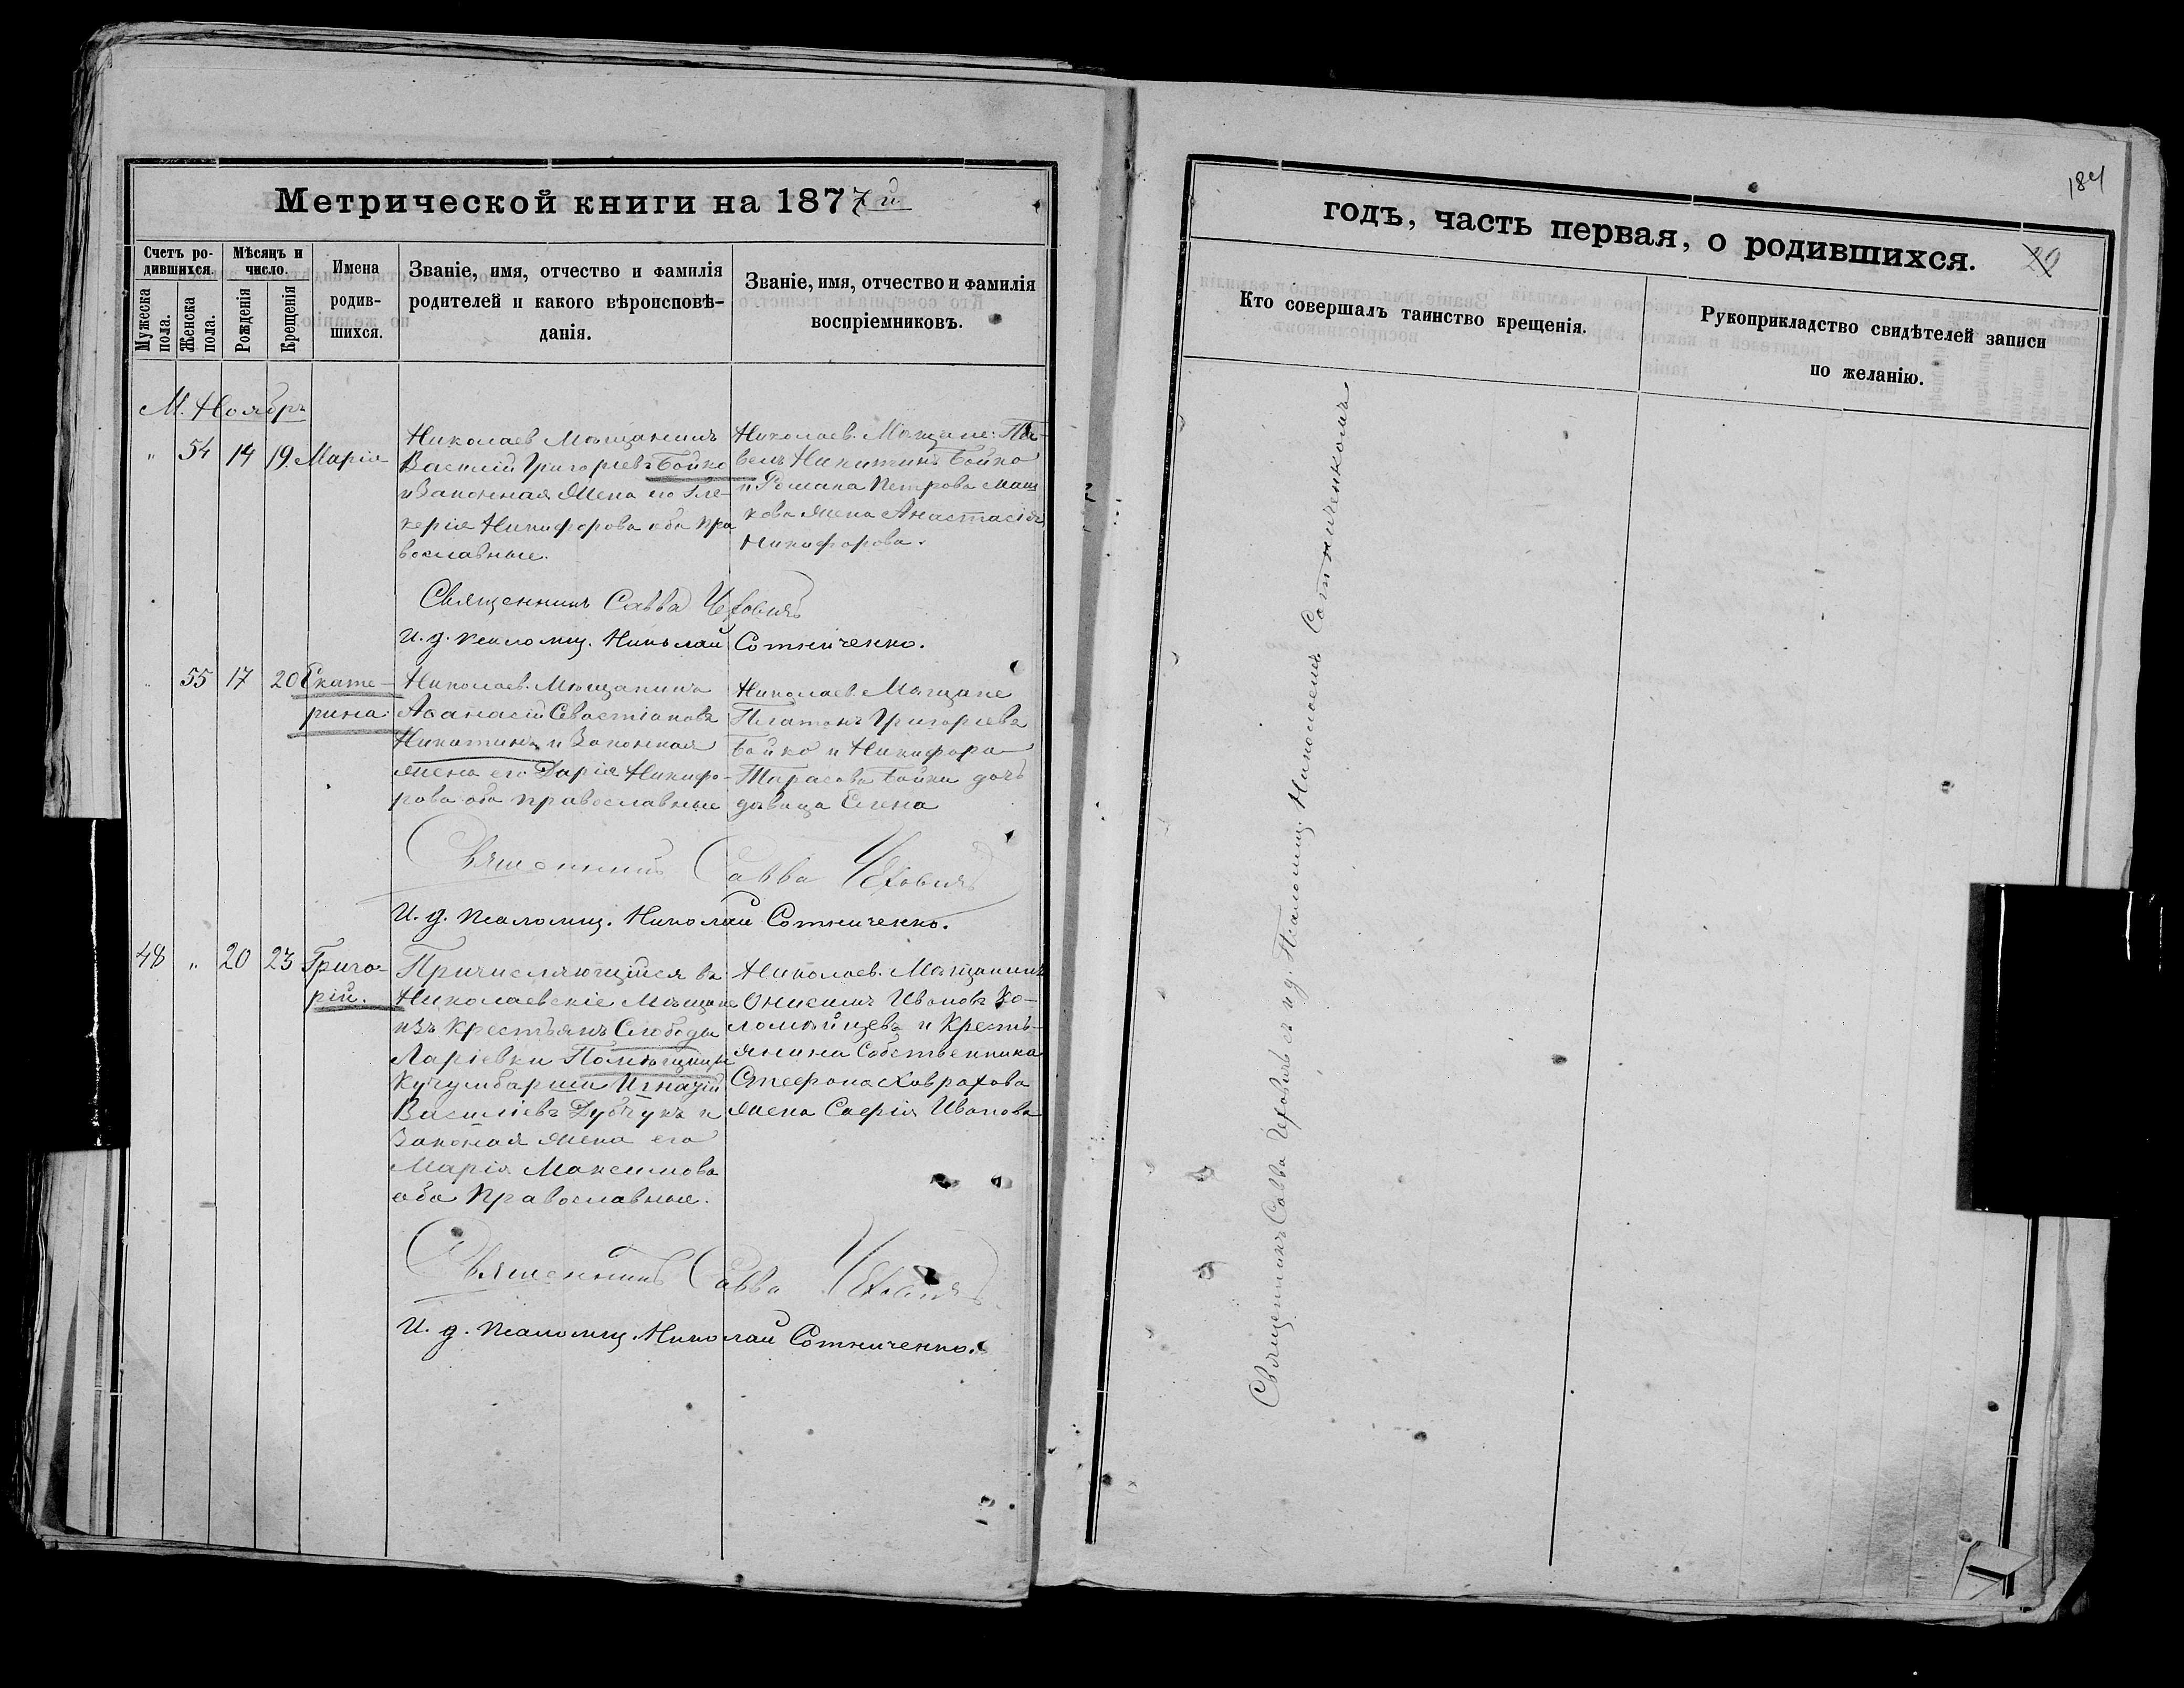 Метрической книги на 1877 й
Счетъ ро-
дившихся.
Мѣсяцъ и
число.
Мужеска
пола.
Женска
пола.
Рожденія
Крещенія
Имена
родив-
шихся.
Званіе, имя, отчество и фамилія
родителей и какого вѣроисповѣ-
данія.
Званіе, имя, отчество и фамилія
воспріемниковъ.
М. Ноябрь
„ 54 14 19. Марія
Николаев Мѣщанинъ
Василій Григорьевъ Бойко
и Законная Жена его Гли-
керія Никифорова оба пра
вославные.
Николаев. Мѣщане: Па-
велъ Никитинъ Бойко
и Романа Петрова
кова жена Анастасія
Никифорова.
Священникъ Савва Чеховичъ
И. д. псаломщ. Николай Сотниченко.
„ 55 17 20 Екате-
рина.
Николаев. Мѣщанинъ
Аѳанасій Севастіановъ
Никитинъ и Законная
жена его Дарія Никифо-
рова оба православные
Николаев. Мѣщане
Платонъ Григорьевъ
Бойко и Никифора
Тарасова Бойки дочь
дѣвица Елена
Священникъ Савва Чеховичъ
И. д. псаломщ. Николай Сотниченко.
48 „ 20 23 Григо-
рій.
Причисляющійся въ
Николаевскіе Мѣщане
изъ крестьянъ Слободы
Ларіевки Помѣщицы
Кучумбарши Игнатій
Василіевъ Дубчукъ и
Законая жена его
Марія Максимова
оба Православные.
Николаев. Мѣщанинъ
Онисимъ Ивановъ Ко-
ломѣйцевъ и Кресть-
янина Собственника
Стефана Хаврахова
жена Софія Иванова
Священникъ Савва Чеховичъ
И. д. псаломщ. Николай Сотниченко.
184
годъ, часть первая, о родившихся.
20
Кто совершалъ таинство крещенія.
Рукоприкладство свидѣтелей записи
по желанію.
Священникъ Савва Чеховичъ съ и. д. Псаломщ. Николаемъ Сотниченкомъ